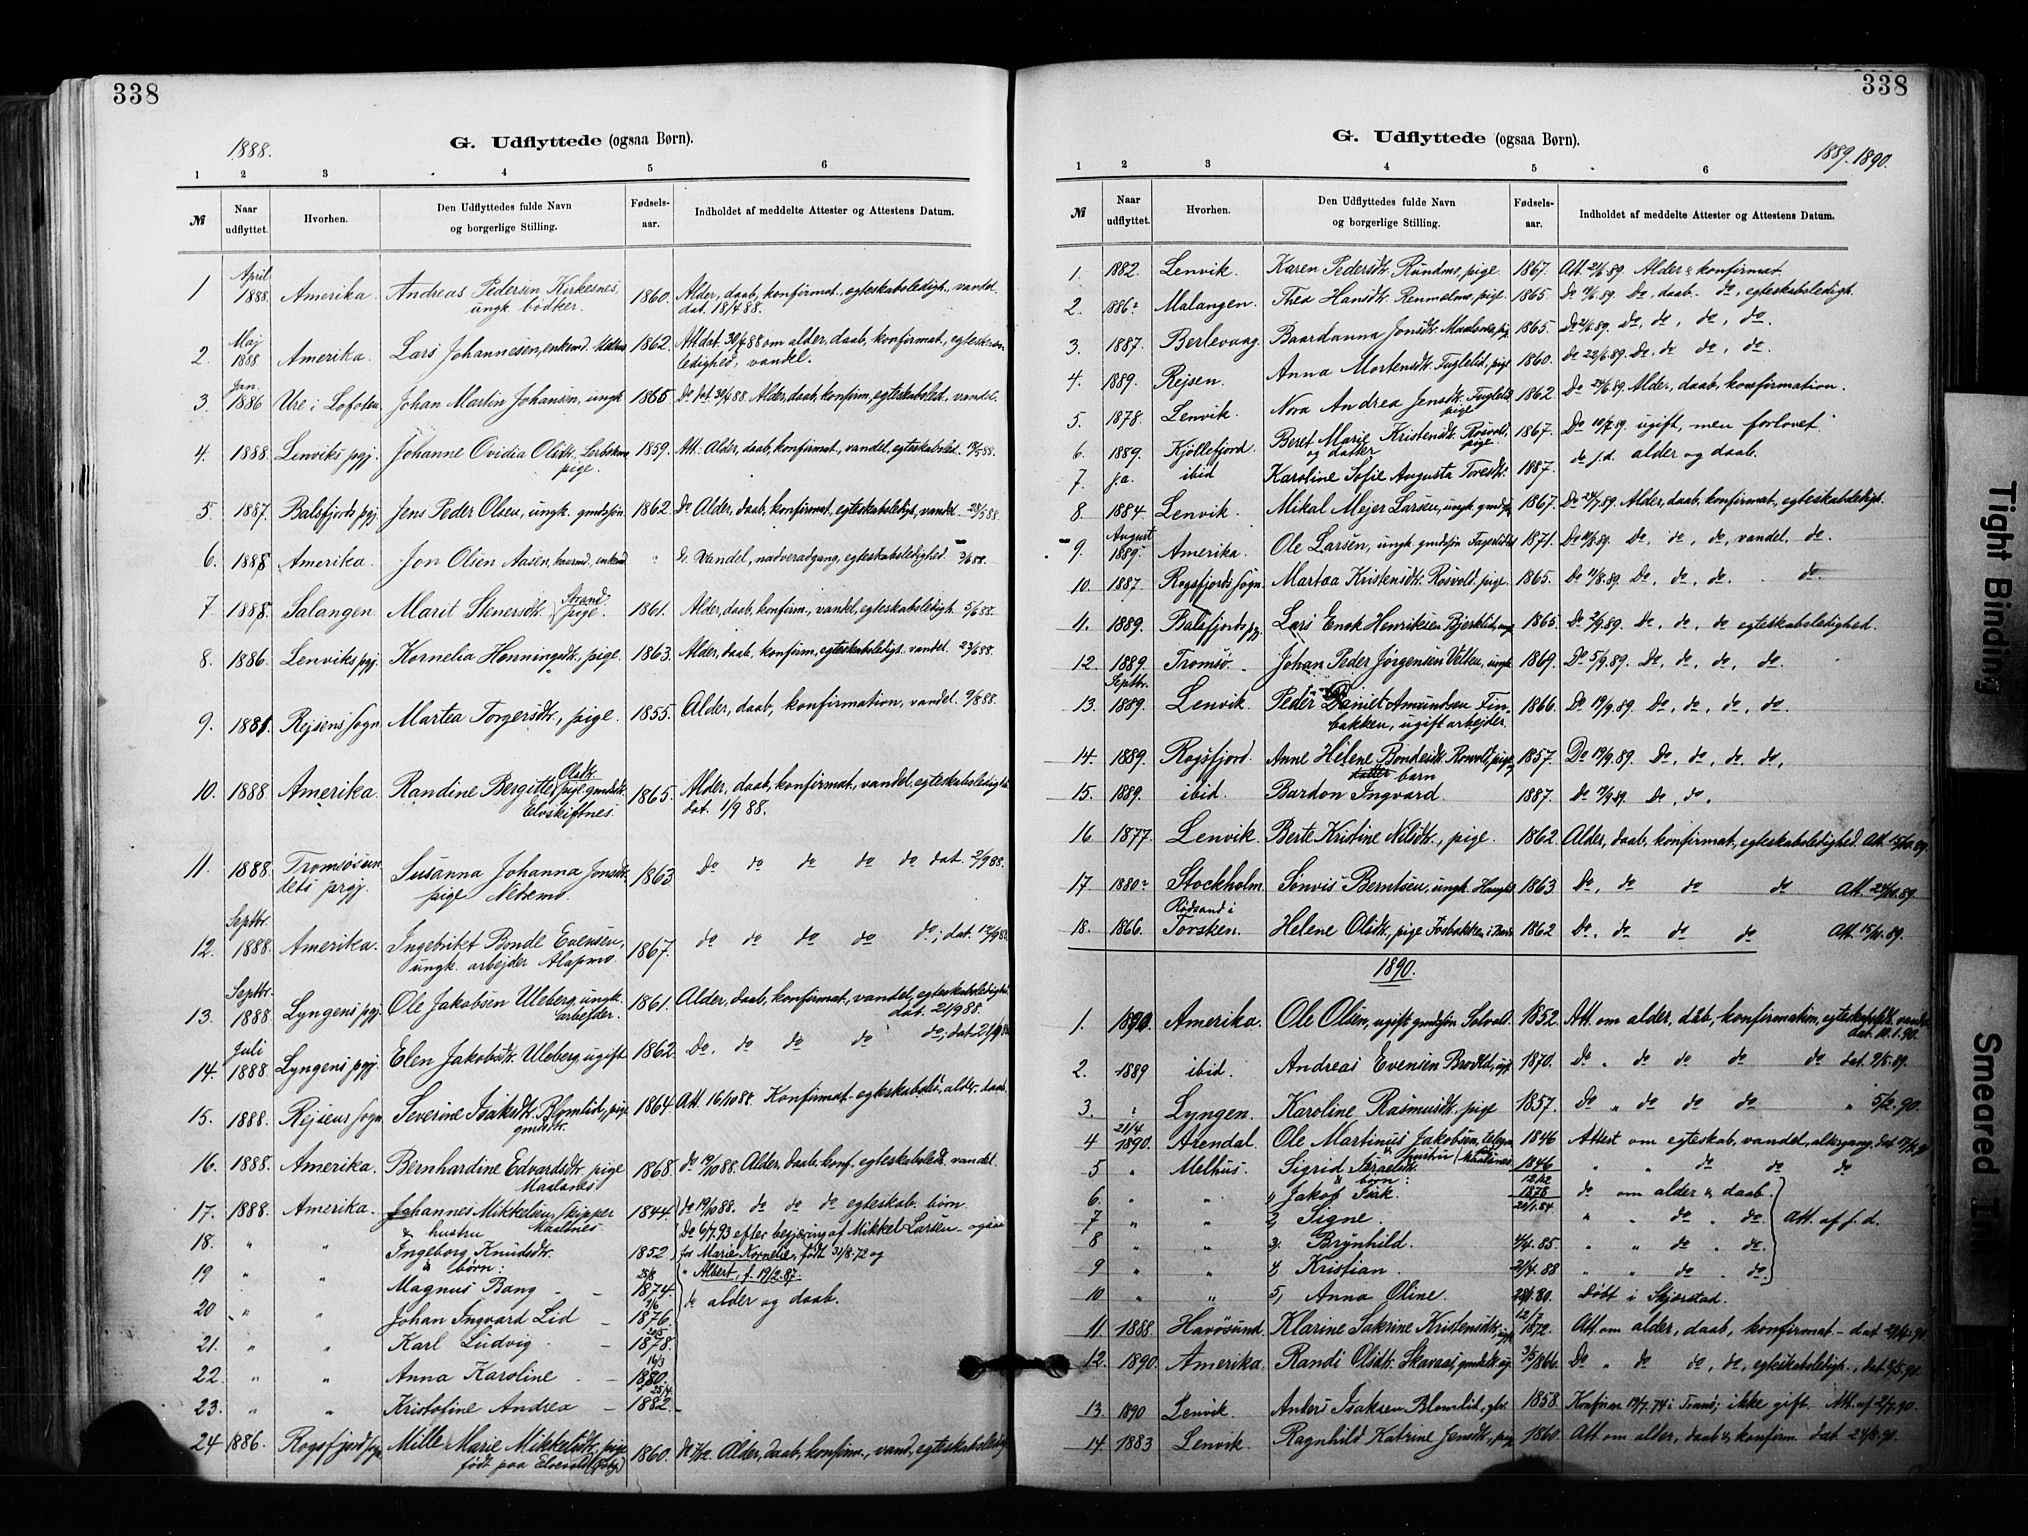 338
1888.
G. Udflyttede (ogsaa Børn).
1 2 3 4 5 6
№ Naar udflyttet. Hvorhen. Den Udflyttedes fulde Navn og borgerlige Stilling. Fødsels-aar. Indholdet af meddelte Attester og Attestens Datum.
1 April 1888. Amerika. Andreas Pedersen Kirkesnes, 1860. Alder, daab, konfirmat., egteskabsledigh., vandel.
ungk. bødker. dat. 18/4 88.
2. Maj 1888 Amerika. Lars Johannesen, enkemd. 1862. Att. dat. 30/4 88 om alder, daab, konfirmat., egteskabs-
ledighed, vandel.
3. Jan. 1886 Ure i Lofoten. Johan Martin Johansen, ungk. 1865 Do dat. 30/4 88. Alder, daab, konfirm., egteskabsled., vandel.
4. 1888. Lenviks pgj. Johanne Ovidia Olsdtr. 1859. Att. Alder, daab, konfirmat., vandel, egteskabsled.
pige.
5. 1887. Balsfjords pgj. Jens Peder Olsen, ungk. gmdsøn 1862. Do Alder, daab, konfirmat., egteskabsledigh., vandel. 28/5 88.
6. 1888. Amerika. Jon Olsen Aasen, enkemd. Do. Vandel, nadveradgang, egteskabsledighed. 2/6 88.
7. 1888. Salangen. Marit Stenersdtr. Strand pige. 1861. Alder, daab, konfirm., vandel, egteskabsledigh. 5/6 88.
8. 1886. Lenviks pgj. Kornelia Henningsdtr., pige. 1863. Alder, daab, konfirm., egteskabsledigh. vandel. 23/6 88.
9. 1881. Rejsens sogn Martea Torgersdtr., pige. 1855. Alder, daab, konfirmation, vandel. 9/8 88.
10. 1888. Amerika. Randine Bergitte Olsdtr. pige gmdsdtr. 1865. Alder, daab, konfirmat., vandel, egteskabsledighed.
Elvskiftnes. dat. 1/9 88.
11. 1888. Tromsøsun- Susanna Johanna Jonsdtr. 1863. Do do do do do dat. 2/9 88.
dets prgj. pige Nedemo.
12. Septbr. 1888. Amerika. Ingebrikt Bonde Evensen, 1867. do do do do do; dat.
ungk. arbejder Alapmo.
13. Septbr. 1888 Lyngens pgj. Ole Jakobsen Uleberg, ungk. 1861. Alder, daab, konfirmat., vandel, egteskabsledighed.
arbejder. dat. 21/9 88.
14. Juli 1888 Lyngens pgj. Elen Jakobsdtr. Uleberg, ugift 1862. Do, do do do do, dat. 21/9 88
15. 1888. Rejsens sogn Severine Isaksdtr. Blomlid, pige 1864. Att. 16/10 88. Konfirmat. egteskabsled., alder, daab.
gmdsdtr.
16. 1888. Amerika. Bernhardine Edvardsdtr. pige 1868. do 19/10 88. Alder, daab, konf. egteskabsledh. vandel.
Maalsnes
17. 1888. Amerika. Johannes Mikkelsen, skipper 1844. do 19/10 88. do do do egteskab. børn.
& hustru Maalsnes Do 6/7.93 efter begjæring af Mikkel Larsen - ogsaa
18. " " Ingeborg Knudsdtr. 1852. for Marie Kornelie, født 31/8.72 og
& børn: " Albert, f. 19/2.87.
19 " " Magnus Bang 25/8 1874. do alder og daab.
20 " " Johan Ingvard Lid 1876.
21. " " Karl Ludvig 1878.
22. " " Anna Karoline 16/3 1880.
23. " " Kristofine Andrea 25/4 1882.
24 1886. Rogsfjord sgn. Mille Marie Mikkelsdtr. pige 1860. Alder, daab, konfirm., vand., egteskabsledigh.
født paa Elvevold
338
G. Udflyttede (ogsaa Børn).
1889. 1890.
1 2 3 4 5 6
№ Naar udflyttet. Hvorhen. Den Udflyttedes fulde Navn og borgerlige Stilling. Fødsels-aar. Indholdet af meddelte Attester og Attestens Datum.
1. 1882. Lenvik. Karen Pedersdtr. Rundmo, pige. 1867. Att. 21/6.89. Alder & konfirmat.
2. 1886? Malangen. Thea Hansdtr. Renmælmo, pige 1865. Do. 89. Do, daab. do, egteskabsledigh.
3. 1887. Berlevaag. Baardanna Jonsdtr. Maalsnes, pg. 1865. Do 21/6.89. Do, do, do, do.
4. 1889. Rejsen. Anna Mortensdtr. Fuglelid, pige 1860. do 22/6.89. Do, do do, do.
5. 1878. Lenvik. Nora Andrea Jensdtr. Fuglelid 1862. Do 89. Alder, daab, konfirmation.
pige
6. 1889. Kjöllefjord. Beret Marie Kristensdtr. Rosvold, 1867. Do. 89. ugift, men forlovet
og datter pige.
7. s.a. ibid Karoline Sofie Augusta Tovesdtr. 1887. do s.d. alder og daab.
8. 1884. Lenvik. Mikal Mejer Larsen, ungk. gmdsn 1867. Do 24/7.89. Alder, daab, konfirmat., egteskabsledigh.
9. August 1889. Amerika. Ole Larsen, ungk. gmdsøn Fagerlidal 1871. Do. 89. Do, do, do, vandel, do.
10. 1887. Rogsfjords sogn. Martea Kristensdtr. Rosvold, pige. 1865. Do 11/8.89. Do, do, do do.
11. 1889. Balsfjords pgj. Lars Enok Henriksen Bjerklid, ung 1865. Do 2/9.89. Do, do, do egteskabsledighed.
12. 1889. Tromsø. Johan Peder Jørgensen Velten, ungk. 1869. Do 5/9.89. Do, do, do, do.
13. Septbr. 1889. Lenvik. Peder Daniel Amundsen Fin- 1866. Do 17/9.89. Do, do, do, do.
bakken, ugift arbejder.
14. 1889. Rogsfjord. Anne Helene Bondesdtr. Rosvold, pige 1857. Do 19/9.89. Do, do, do, do.
barn
15. 1889. ibid. Bardon Ingvard. 1887. Do 19/9.89. Do, do.
16 1877. Lenvik. Berte Kristine Nilsdtr., pige. 1862. Alder, daab, konfirmat., egteskabsledighed. Att. 15/10.89.
17 1880? Stockholm. Sønvis Berntsen, ungk. Haugli 1863 Do, do do do Att. 24/10.89.
18. 1866. Rödsand i Torsken. Helene Olsdtr., pige Fosbakken i Bards 1862 Do, do do do Att. 89.
1890.
1. 1890. Amerika. Ole Olsen, ugift gmdsøn Solvold. 1852. Att. om alder, daab, konfirmation, egteskabsledh. vandel
dat. 11.1.90.
2. 1889 ibid. Andreas Evensen 1870. do " do do do do dat. 9/5.89.
3. " Lyngen. Karoline Rasmusdtr. pige 1857. do " do do do " 5/2.90.
4 21/4 1890. Arendal. Ole Martinus Jakobsen, telegr. 1846 Attest om egteskab, vandel, altergang. dat
& hustru (Maalsnes
5 " Melhus. Sigrid Israelsdtr. 1846 " " do do do
& børn:
6. " " 1, Jakob Isak. 12/12 1878 do om alder & daab.
7 " " 2, Signe. 20/1.84 " " do " do. Att. af s. d.
8 " " 3, Brynhild. 4/4.85. " " do " do.
9 " " 4, Kristian. 2/4.88 " " do " do.
10 " " 5, Anna Oline. døbt i Skjerstad.
11 1888. Havösund. Klarine Sakrine Kristensdtr. 12/7 1872. Att. om alder, daab, konfirmat. - dat.
12. 1890. Amerika. Randi Olsdtr. Skavaas, gmdsdtr. ug. 3/5 1866. Do " do do, do, egteskabsledigh., dat. 8/5.90.
13. 1890 Lenvik. Anders Isaksen Blomlid, gbr. 1858. Konfirm. 74 i Tranø; ikke gift. Att. af 2/7.90.
14. 1883 Lenvik. Ragnhild Katrine Jensdtr., pige 1860. Att. om alder, daab & konfirm. dat. 24/8.90.
Tight Binding
Smeared Ink